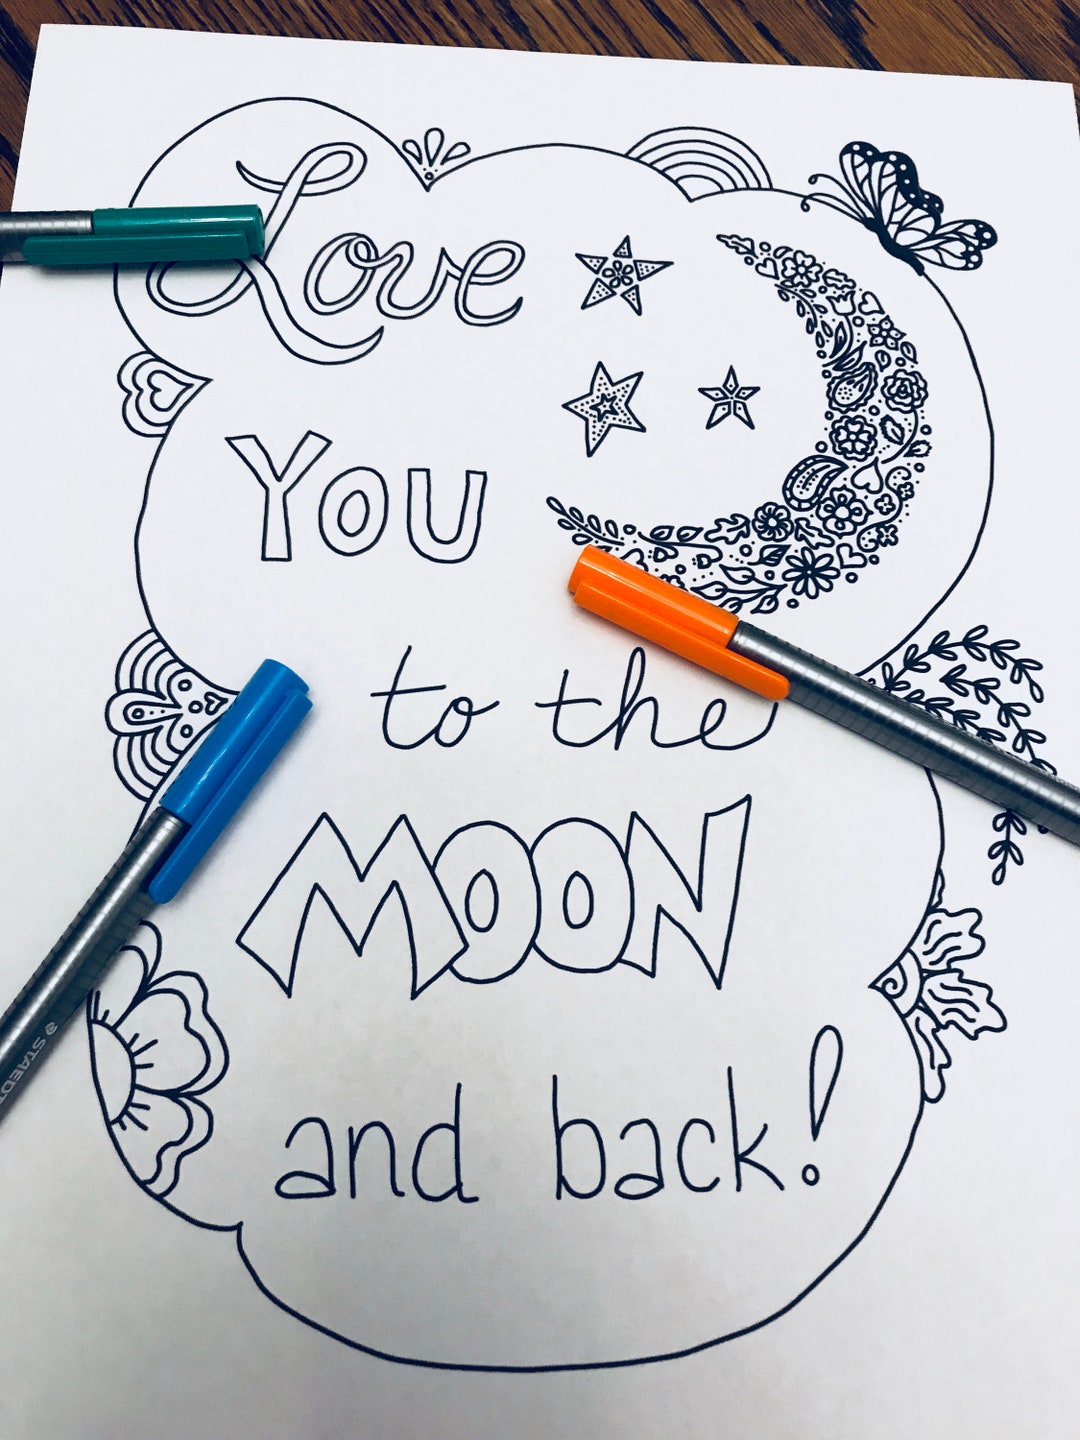 Love
You
to the
MOON
and back!
STAEDT